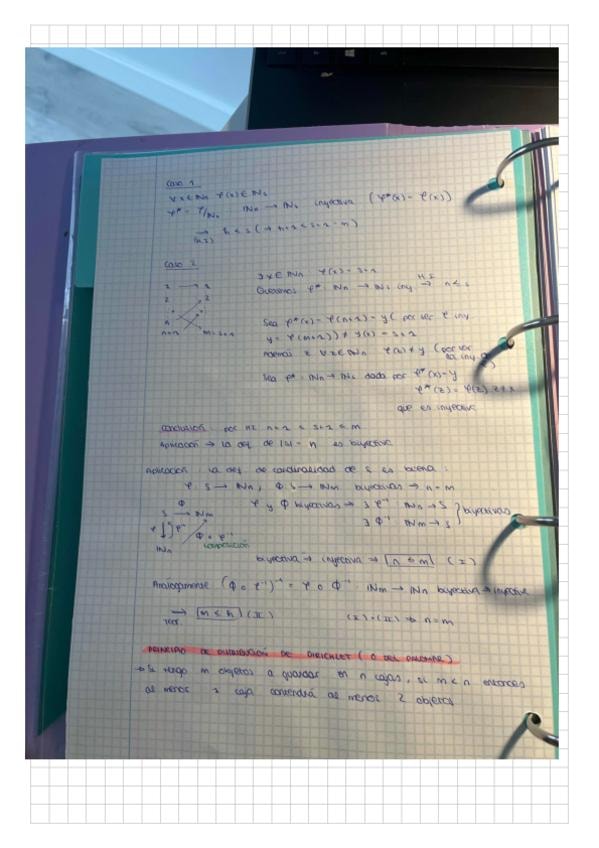 Caso 1
∀x∈ℕn φ(x)∈ℕs
φ* = φ/ℕn ℕn → ℕs inyectiva (φ*(x) = φ(x))
→ (H.I) n ≤ s (→ n+1 ≤ s+1 = m)
Caso 2
∃x∈ℕn φ(x) = s+1
1 → 1
Queremos φ* ℕn → ℕs iny. →H.I n ≤ s
2 2
n
n+1 m=s+1
Sea φ*(x) = φ(n+1) = y (por ser φ iny
y = φ(n+1)) ≠ φ(x) = s+1
z ∀z∈ℕn φ(z) ≠ y (por ser
la iny.
Sea φ* : ℕn → ℕs dada por φ*(x) = y
φ*(z) = φ(z) z≠x
que es inyectiva
Conclusión : por HI n+1 ≤ s+1 = m
Aplicación → la def. de |S| = n es biyectiva
Aplicación : la def. de cardinalidad de S es buena :
φ : S → ℕn, Φ : S → ℕm biyectivas → n = m
Φ
S → ℕm
φ y Φ biyectivas → ∃ φ⁻¹ ℕn → S
φ φ⁻¹
∃ Φ⁻¹ ℕm → S } biyectivas
Φ ∘ φ⁻¹
ℕn composición
biyectiva → inyectiva → n ≤ m (I)
Analogamente (Φ ∘ φ⁻¹)⁻¹ = φ ∘ Φ⁻¹ : ℕm → ℕn biyectiva → inyectiva
→ teor. m ≤ n (II) (I)+(II) ⇒ n = m
PRINCIPIO DE DISTRIBUCIÓN DE DIRICHLET ( O DEL PALOMAR )
→ Si tengo m objetos a guardar en n cajas, si m < n entonces
al menos 1 caja contendrá al menos 2 objetos